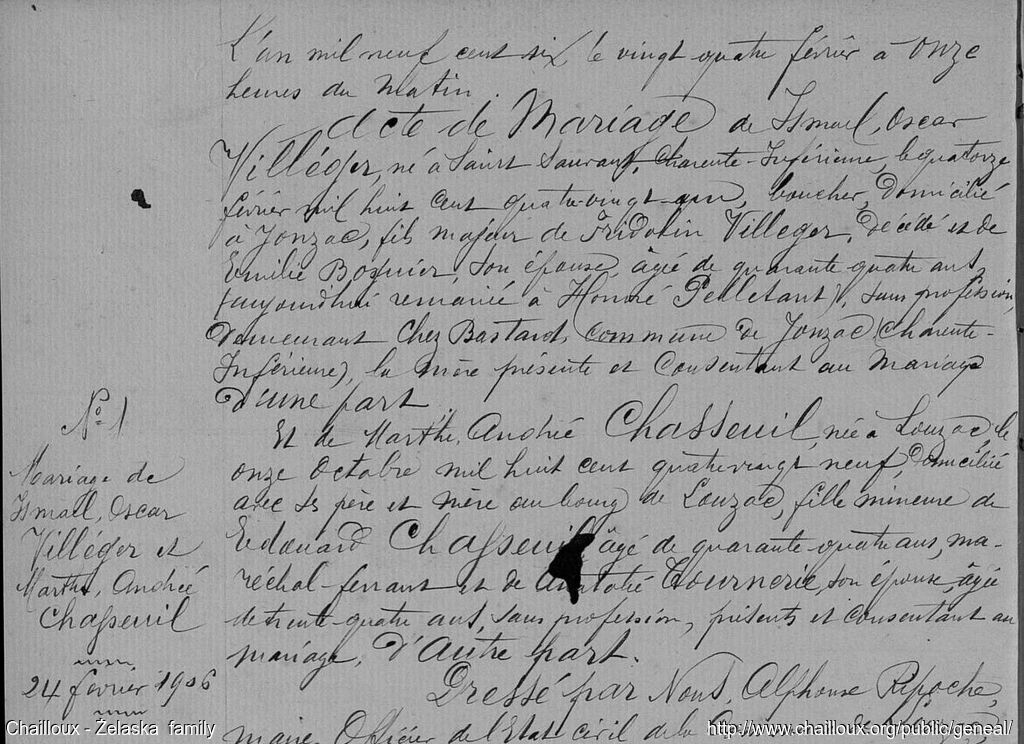 L'an mil neuf cent six le vingt quatre février à onze
heures du matin.
Acte de Mariage de Ismael, Oscar
Villéger, né à Saint Sauvant, Charente-Inférieure, le quatorze
février mil huit cent quatre-vingt-un, boucher, domicilié
à Jonzac, fils majeur de Fridolin Villeger, décédé et de
Emilie Boguier, son épouse, âgée de quarante quatre ans,
(aujourdhui remariée à Honoré Pelletant), sans profession,
demeurant Chez Bastard, commune de Jonzac (Charente-
Inférieure), la mère présente et consentant au mariage
d'une part.
Et de Marthe, Andrée Chasseuil, née à Louzac, le
onze Octobre mil huit cent quatrevingt neuf domiciliée
avec ses père et mère au bourg de Louzac, fille mineure de
Edouard Chasseuil âgé de quarante-quatre ans, ma-
réchal-ferrant et de Tournerie, son épouse, âgée
de trente-quatre ans, sans profession, présents et consentant au
mariage, d'autre part.
Dressé par Nous, Alphonse Ripoche,
maire Officier de l'Etat civil de la Commune de
N° 1
Mariage de
Ismaël, Oscar
Villéger et
Marthe, Andrée
Chasseuil
24 février 1906
Chailloux - Żelaska family
http://www.chailloux.org/public/geneal/